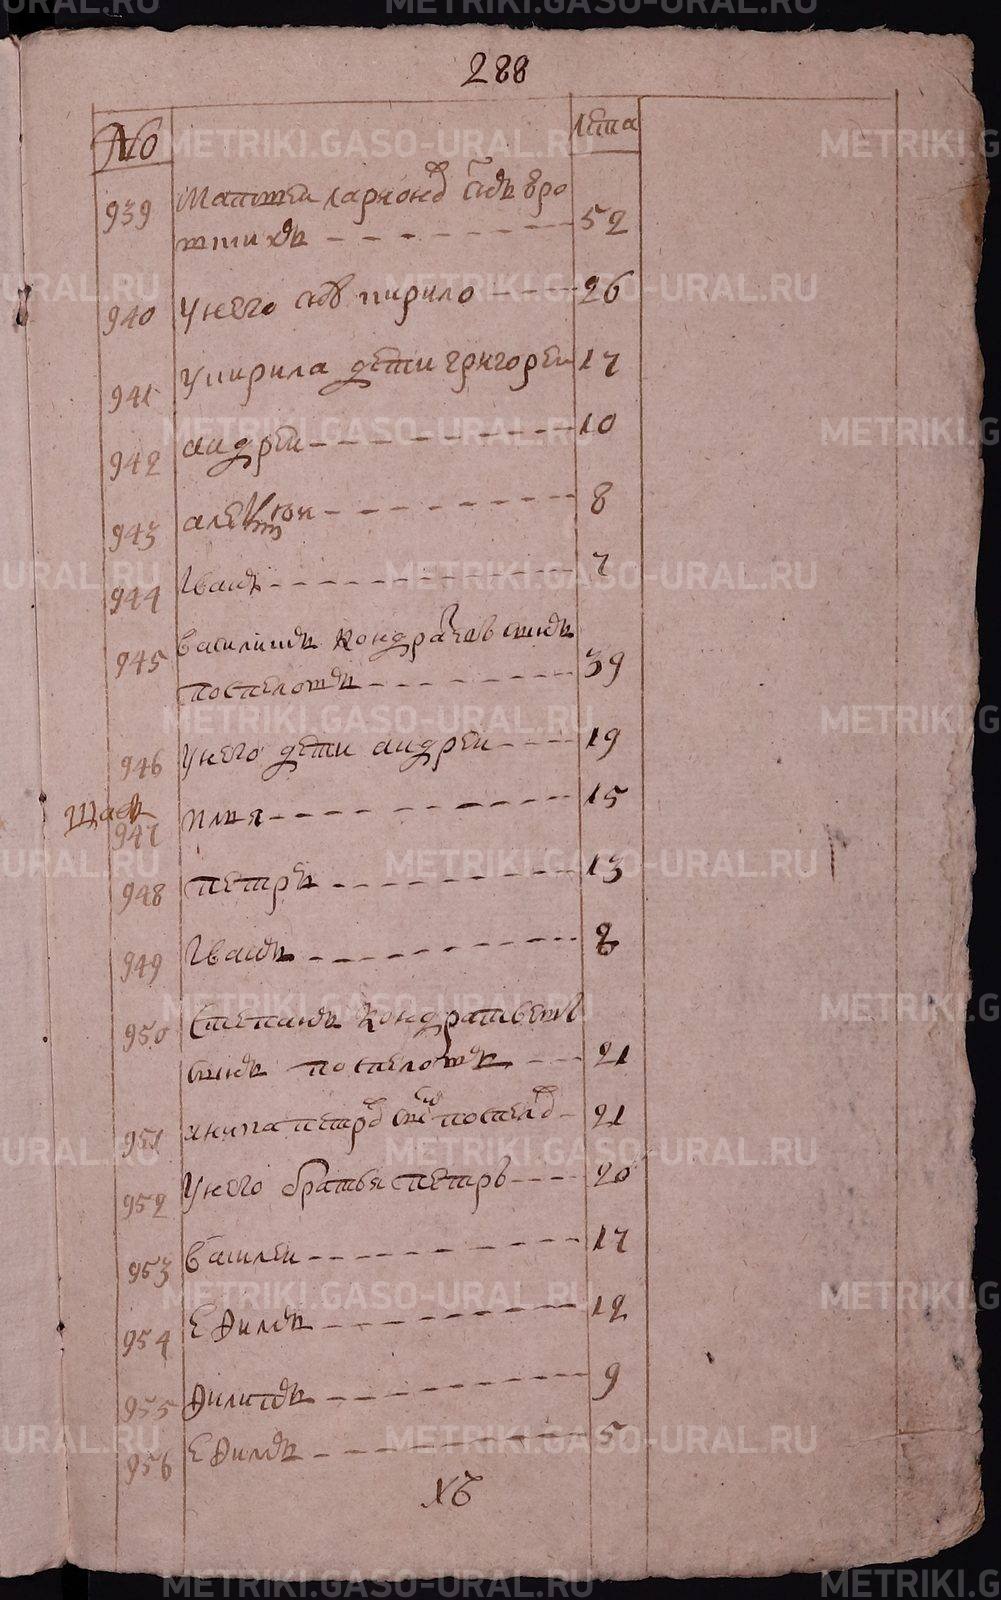 288
№ лета
939 Матвеи ларионов сынъ
52
940 у него сынъ кирило 26
941 у кирила дети григореи 17
942 андреи 10
943 8
944 Иванъ 7
945 василиидъ Кондратьевъ сынъ
поспеловъ 39
946 у него дети андреи 19
947 илья 15
948 петръ 13
949 Иванъ 8
950 Степанъ Кондратьевъ
сынъ поспеловъ 21
951 петров сынъ поспелов 21
952 у него братья петръ 20
953 василеи 17
954 Ефимъ 12
955 Филипъ 9
956 Ефимъ 5
METRIKI.GASO-URAL.RU